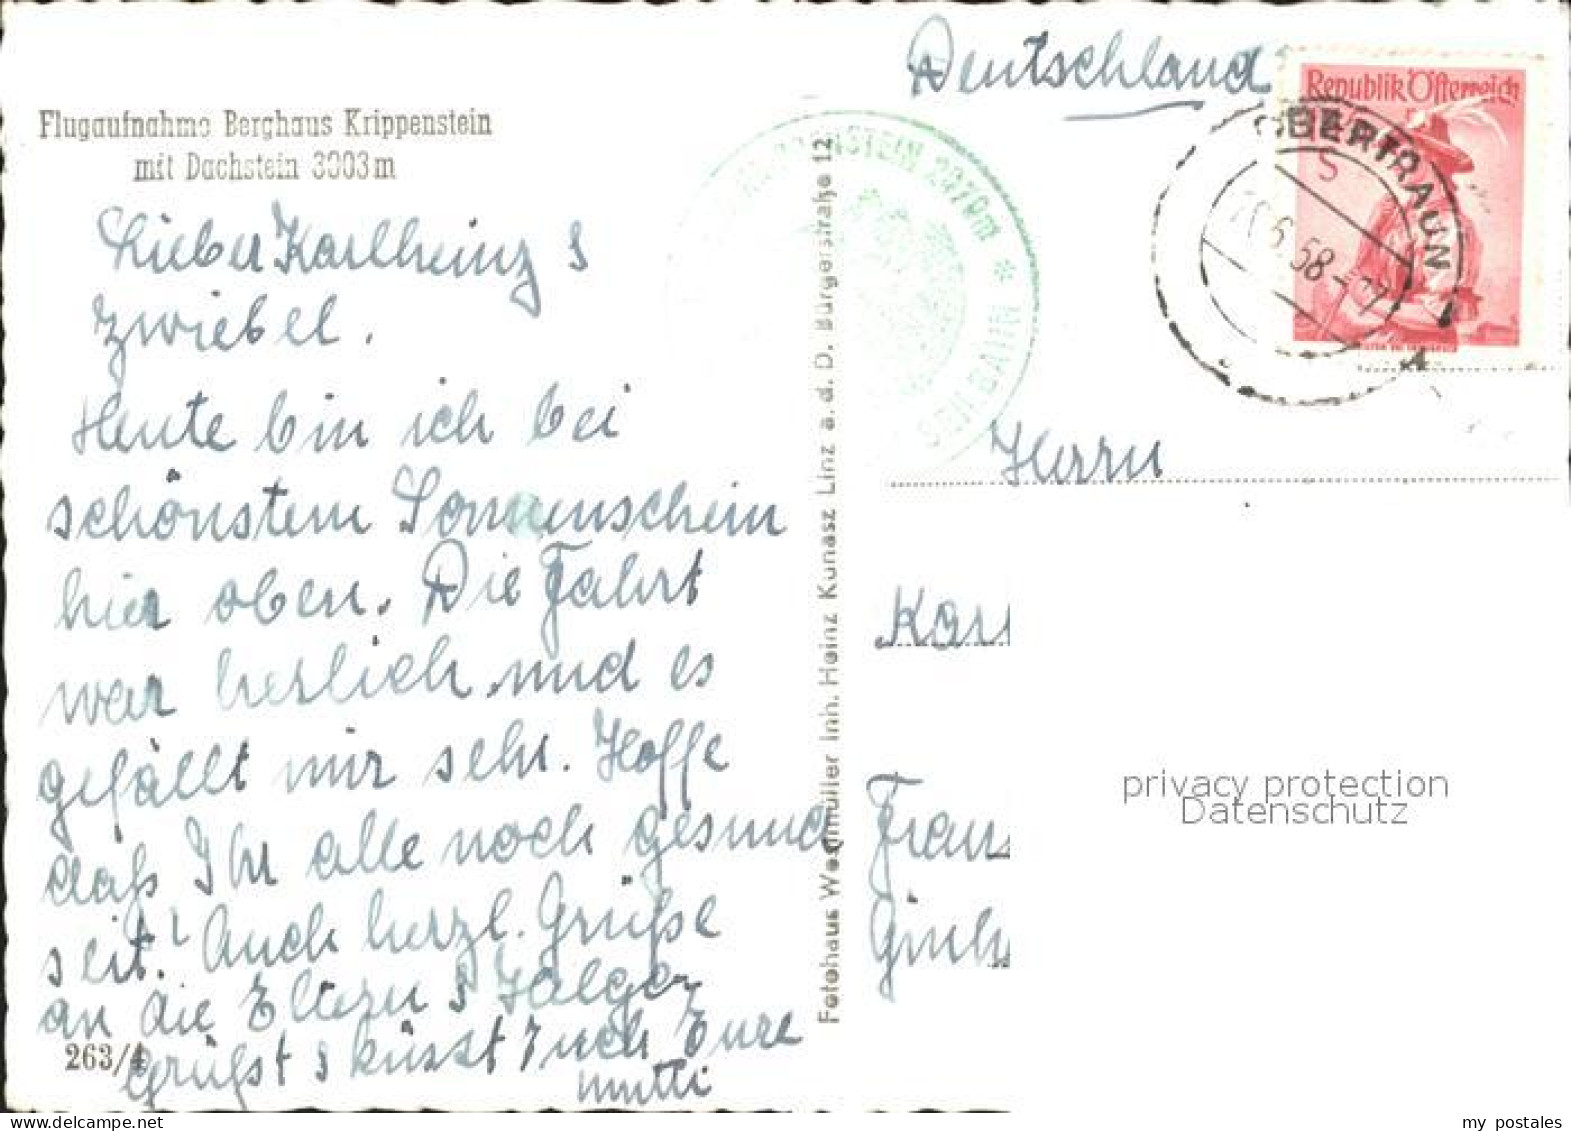 Flugaufnahme Berghaus Krippenstein
mit Dachstein 3003 m
Lieber Karlheinz &
Zwiebel.
Heute bin ich bei
schönstem Sonnenschein
hier oben. Die Fahrt
war herlich und es
gefällt mir sehr. Hoffe
daß Ihr alle noch gesund
seit! Auch herzl. Grüße
an die Eltern &
Grüßt & küsst Euch Eure
Mutti
263/4
Fotohaus Westmüller Inh. Heinz Kunasz Linz a. d. D. Bürgerstraße 12
Deutschland
Republik Österreich
OBERTRAUN
6 58
2079m *
Herrn
Kar
Fran
privacy protection
Datenschutz
my postales